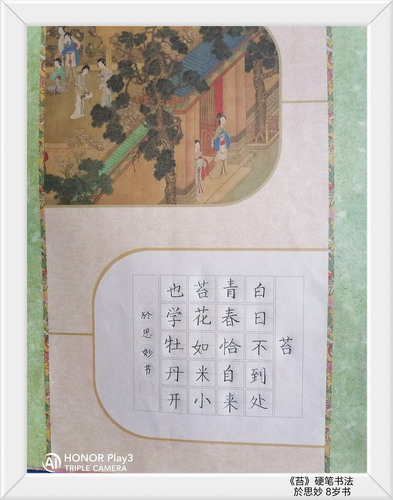 苔
白日不到处
青春恰自来
苔花如米小
也学牡丹开
於思妙书
HONOR Play3
TRIPLE CAMERA
AI
《苔》硬笔书法
於思妙 8岁书